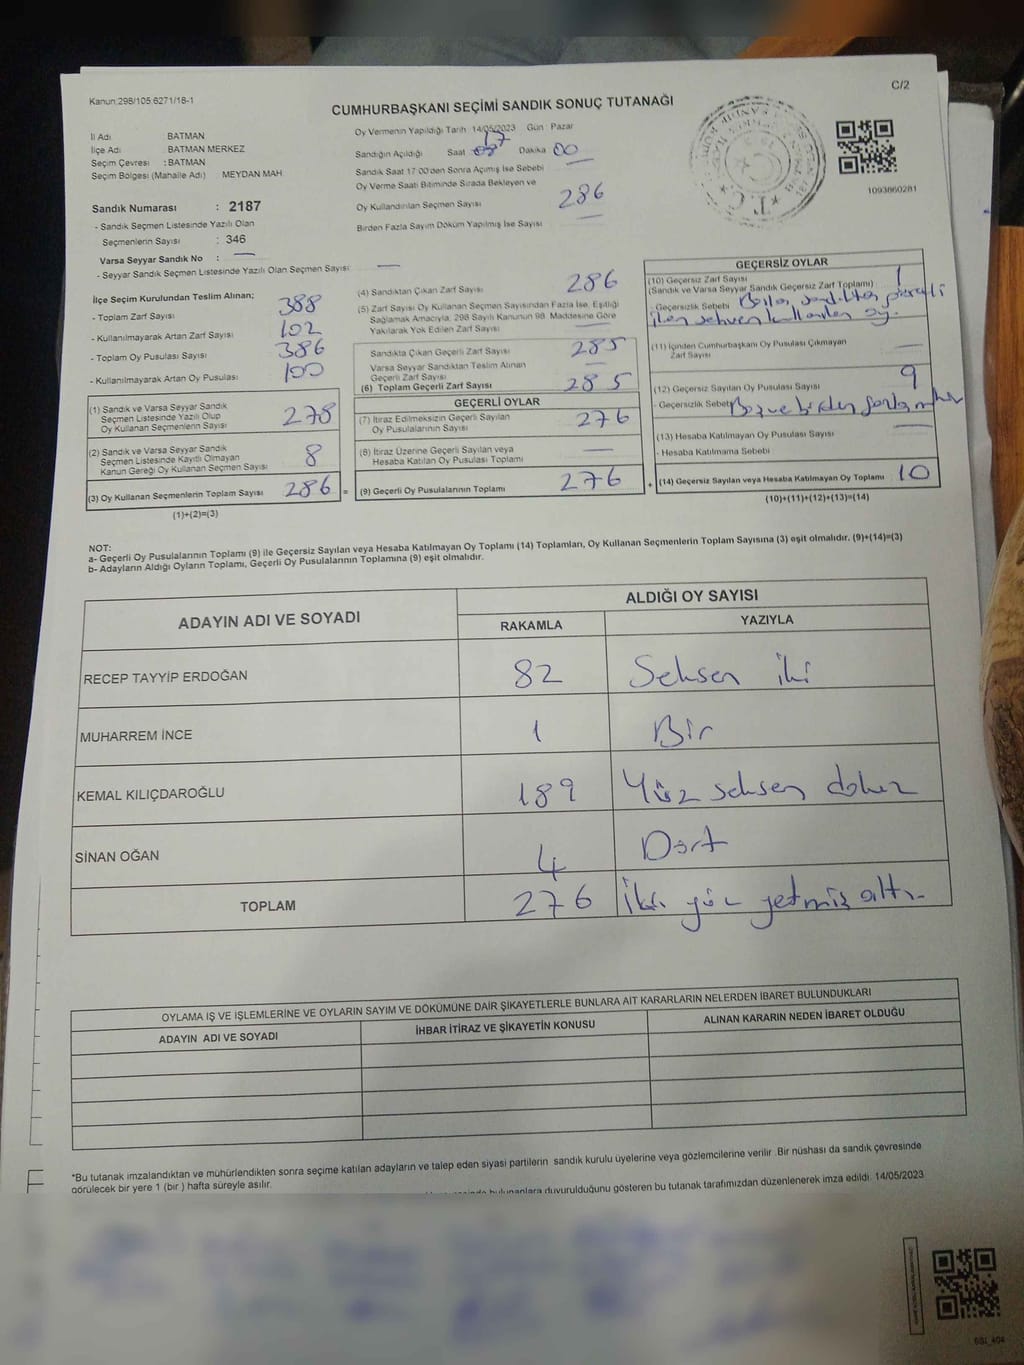 C/2
Kanun:298/105:6271/18-1
CUMHURBAŞKANI SEÇİMİ SANDIK SONUÇ TUTANAĞI
İl Adı : BATMAN
İlçe Adı : BATMAN MERKEZ
Seçim Çevresi : BATMAN
Seçim Bölgesi (Mahalle Adı) : MEYDAN MAH.
Sandık Numarası : 2187
- Sandık Seçmen Listesinde Yazılı Olan
Seçmenlerin Sayısı : 346
Varsa Seyyar Sandık No : —
- Seyyar Sandık Seçmen Listesinde Yazılı Olan Seçmen Sayısı : —
Oy Vermenin Yapıldığı Tarih 14/05/2023 Gün Pazar
Sandığın Açıldığı Saat 17 Dakika 00
Sandık Saat 17:00'den Sonra Açılmış İse Sebebi —
Oy Verme Saati Bitiminde Sırada Bekleyen ve
Oy Kullandırılan Seçmen Sayısı 286
Birden Fazla Sayım Döküm Yapılmış İse Sayısı —
1093860281
İlçe Seçim Kurulundan Teslim Alınan;
- Toplam Zarf Sayısı 388
- Kullanılmayarak Artan Zarf Sayısı 102
- Toplam Oy Pusulası Sayısı 386
- Kullanılmayarak Artan Oy Pusulası 100
(1) Sandık ve Varsa Seyyar Sandık
Seçmen Listesinde Yazılı Olup
Oy Kullanan Seçmenlerin Sayısı 278
(2) Sandık ve Varsa Seyyar Sandık
Seçmen Listesinde Kayıtlı Olmayan
Kanun Gereği Oy Kullanan Seçmen Sayısı 8
(3) Oy Kullanan Seçmenlerin Toplam Sayısı 286 =
(1)+(2)=(3)
(4) Sandıktan Çıkan Zarf Sayısı 286
(5) Zarf Sayısı Oy Kullanan Seçmen Sayısından Fazla İse, Eşitliği
Sağlamak Amacıyla, 298 Sayılı Kanunun 98. Maddesine Göre
Yakılarak Yok Edilen Zarf Sayısı —
Sandıkta Çıkan Geçerli Zarf Sayısı 285
Varsa Seyyar Sandıktan Teslim Alınan
Geçerli Zarf Sayısı —
(6) Toplam Geçerli Zarf Sayısı 285
GEÇERLİ OYLAR
(7) İtiraz Edilmeksizin Geçerli Sayılan
Oy Pusulalarının Sayısı 276
(8) İtiraz Üzerine Geçerli Sayılan veya
Hesaba Katılan Oy Pusulası Toplamı —
(9) Geçerli Oy Pusulalarının Toplamı 276 +
GEÇERSİZ OYLAR
(10) Geçersiz Zarf Sayısı
(Sandık ve Varsa Seyyar Sandık Geçersiz Zarf Toplamı) 1
- Geçersizlik Sebebi
sehven kullanılan oy.
(11) İçinden Cumhurbaşkanı Oy Pusulası Çıkmayan
Zarf Sayısı —
(12) Geçersiz Sayılan Oy Pusulası Sayısı 9
- Geçersizlik Sebebi Boş ve birden fazla mühür
(13) Hesaba Katılmayan Oy Pusulası Sayısı —
- Hesaba Katılmama Sebebi
(14) Geçersiz Sayılan veya Hesaba Katılmayan Oy Toplamı 10
(10)+(11)+(12)+(13)=(14)
NOT:
a- Geçerli Oy Pusulalarının Toplamı (9) ile Geçersiz Sayılan veya Hesaba Katılmayan Oy Toplamı (14) Toplamları, Oy Kullanan Seçmenlerin Toplam Sayısına (3) eşit olmalıdır. (9)+(14)=(3)
b- Adayların Aldığı Oyların Toplamı, Geçerli Oy Pusulalarının Toplamına (9) eşit olmalıdır.
ADAYIN ADI VE SOYADI
ALDIĞI OY SAYISI
RAKAMLA YAZIYLA
RECEP TAYYİP ERDOĞAN 82 Seksen iki
MUHARREM İNCE 1 Bir
KEMAL KILIÇDAROĞLU 189 Yüz seksen dokuz
SİNAN OĞAN 4 Dört
TOPLAM 276 İki yüz yetmiş altı.
OYLAMA İŞ VE İŞLEMLERİNE VE OYLARIN SAYIM VE DÖKÜMÜNE DAİR ŞİKAYETLERLE BUNLARA AİT KARARLARIN NELERDEN İBARET BULUNDUKLARI
ADAYIN ADI VE SOYADI İHBAR İTİRAZ VE ŞİKAYETİN KONUSU ALINAN KARARIN NEDEN İBARET OLDUĞU
*Bu tutanak imzalandıktan ve mühürlendikten sonra seçime katılan adayların ve talep eden siyasi partilerin sandık kurulu üyelerine veya gözlemcilerine verilir .Bir nüshası da sandık çevresinde
görülecek bir yere 1 (bir ) hafta süreyle asılır.
bulunanlara duyurulduğunu gösteren bu tutanak tarafımızdan düzenlenerek imza edildi. 14/05/2023